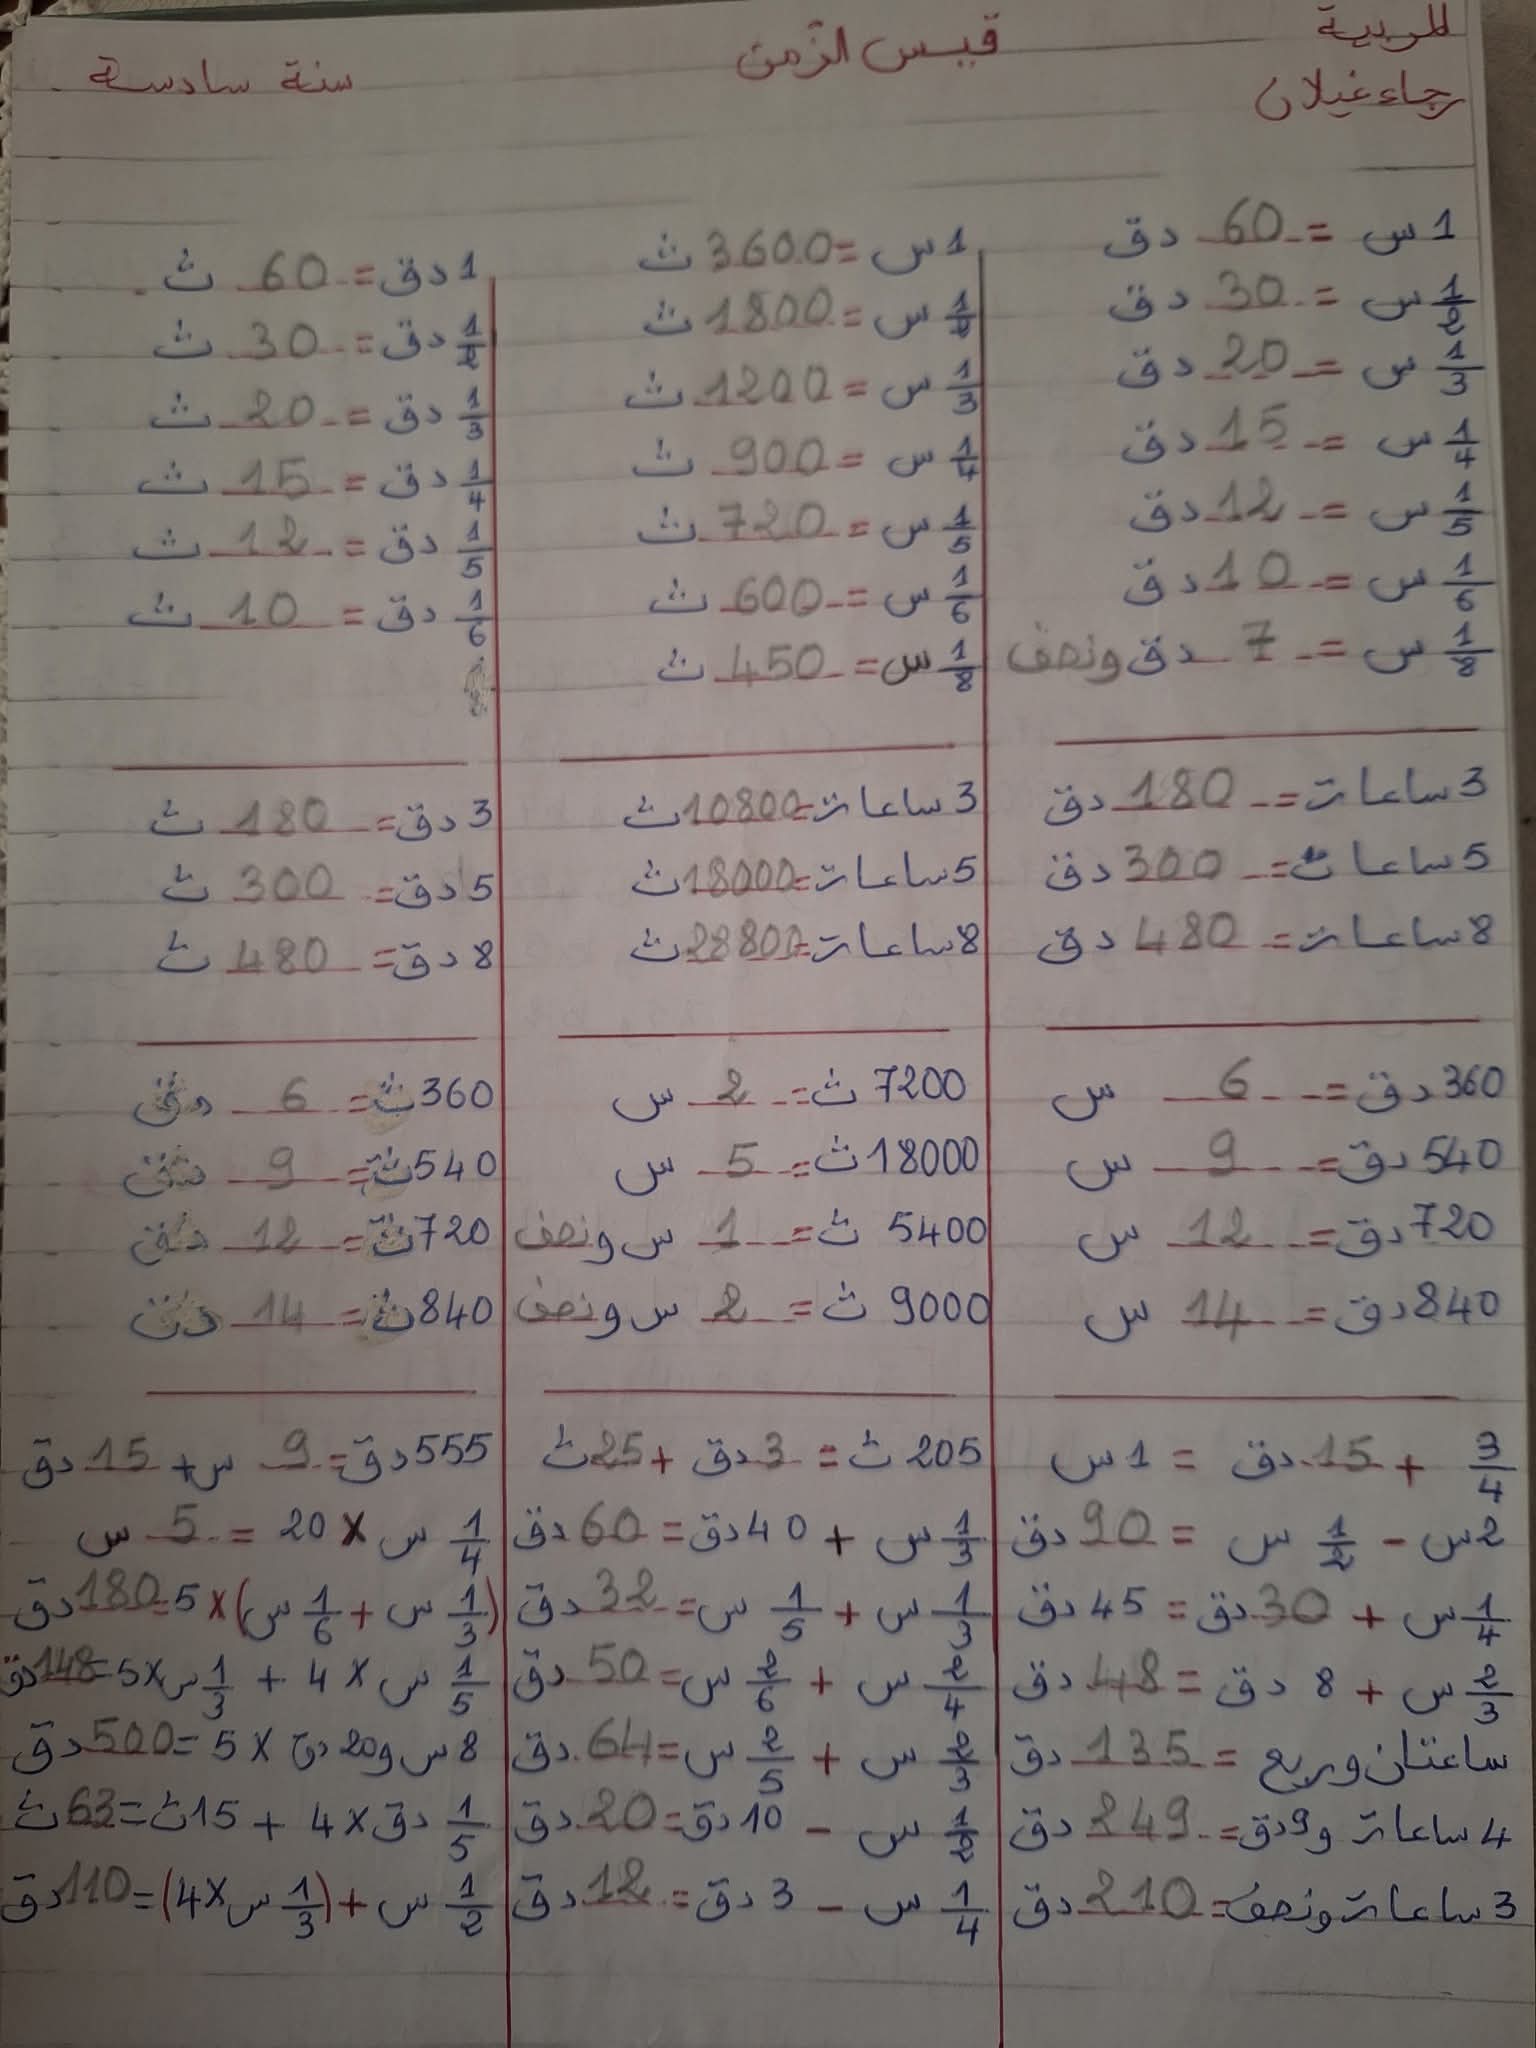 المربية
رجاء غيلان
قيس الزّمن
سنة سادسة
1 س = 60 دق
1/2 س = 30 دق
1/3 س = 20 دق
1/4 س = 15 دق
1/5 س = 12 دق
1/6 س = 10 دق
1/8 س = 7 دق ونصف
3 ساعات = 180 دق
5 ساعات = 300 دق
8 ساعات = 480 دق
360 دق = 6 س
540 دق = 9 س
720 دق = 12 س
840 دق = 14 س
3/4 + 15 دق = 1 س
2 س - 1/2 س = 90 دق
1/4 س + 30 دق = 45 دق
2/3 س + 8 دق = 48 دق
ساعتان وربع = 135 دق
4 ساعات و9دق = 249 دق
3 ساعات ونصف = 210 دق
1 س = 3600 ث
1/2 س = 1800 ث
1/3 س = 1200 ث
1/4 س = 900 ث
1/5 س = 720 ث
1/6 س = 600 ث
1/8 س = 450 ث
3 ساعات = 10800 ث
5 ساعات = 18000 ث
8 ساعات = 28800 ث
7200 ث = 2 س
18000 ث = 5 س
5400 ث = 1 س ونصف
9000 ث = 2 س ونصف
205 ث = 3 دق + 25 ث
1/3 س + 40 دق = 60 دق
1/3 س + 1/5 س = 32 دق
2/4 س + 2/6 س = 50 دق
2/3 س + 2/5 س = 64 دق
1/2 س - 10 دق = 20 دق
1/4 س - 3 دق = 12 دق
1 دق = 60 ث
1/2 دق = 30 ث
1/3 دق = 20 ث
1/4 دق = 15 ث
1/5 دق = 12 ث
1/6 دق = 10 ث
3 دق = 180 ث
5 دق = 300 ث
8 دق = 480 ث
360 ث = 6 دق
540 ث = 9 دق
720 ث = 12 دق
840 ث = 14 دق
555 دق = 9 س + 15 دق
1/4 س × 20 = 5 س
(1/3 س + 1/6 س) × 5 = 180 دق
1/5 س × 4 + 1/3 س × 5 = 148 دق
8 س و20 دق × 5 = 500 دق
1/5 دق × 4 + 15 ث = 63 ث
1/2 س + (1/3 س × 4) = 110 دق